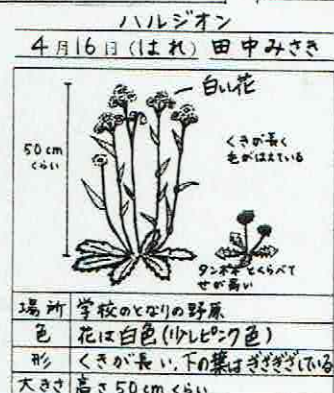 ハルジオン
4月16日(はれ) 田中みさき
白い花
50cm
くらい
くきが長く
毛がはえている
タンポポとくらべて
せが高い
場所 学校のとなりの野原
色 花は白色(少しピンク色)
形 くきが長い、下の葉はぎざぎざしている
大きさ 高さ50cmくらい